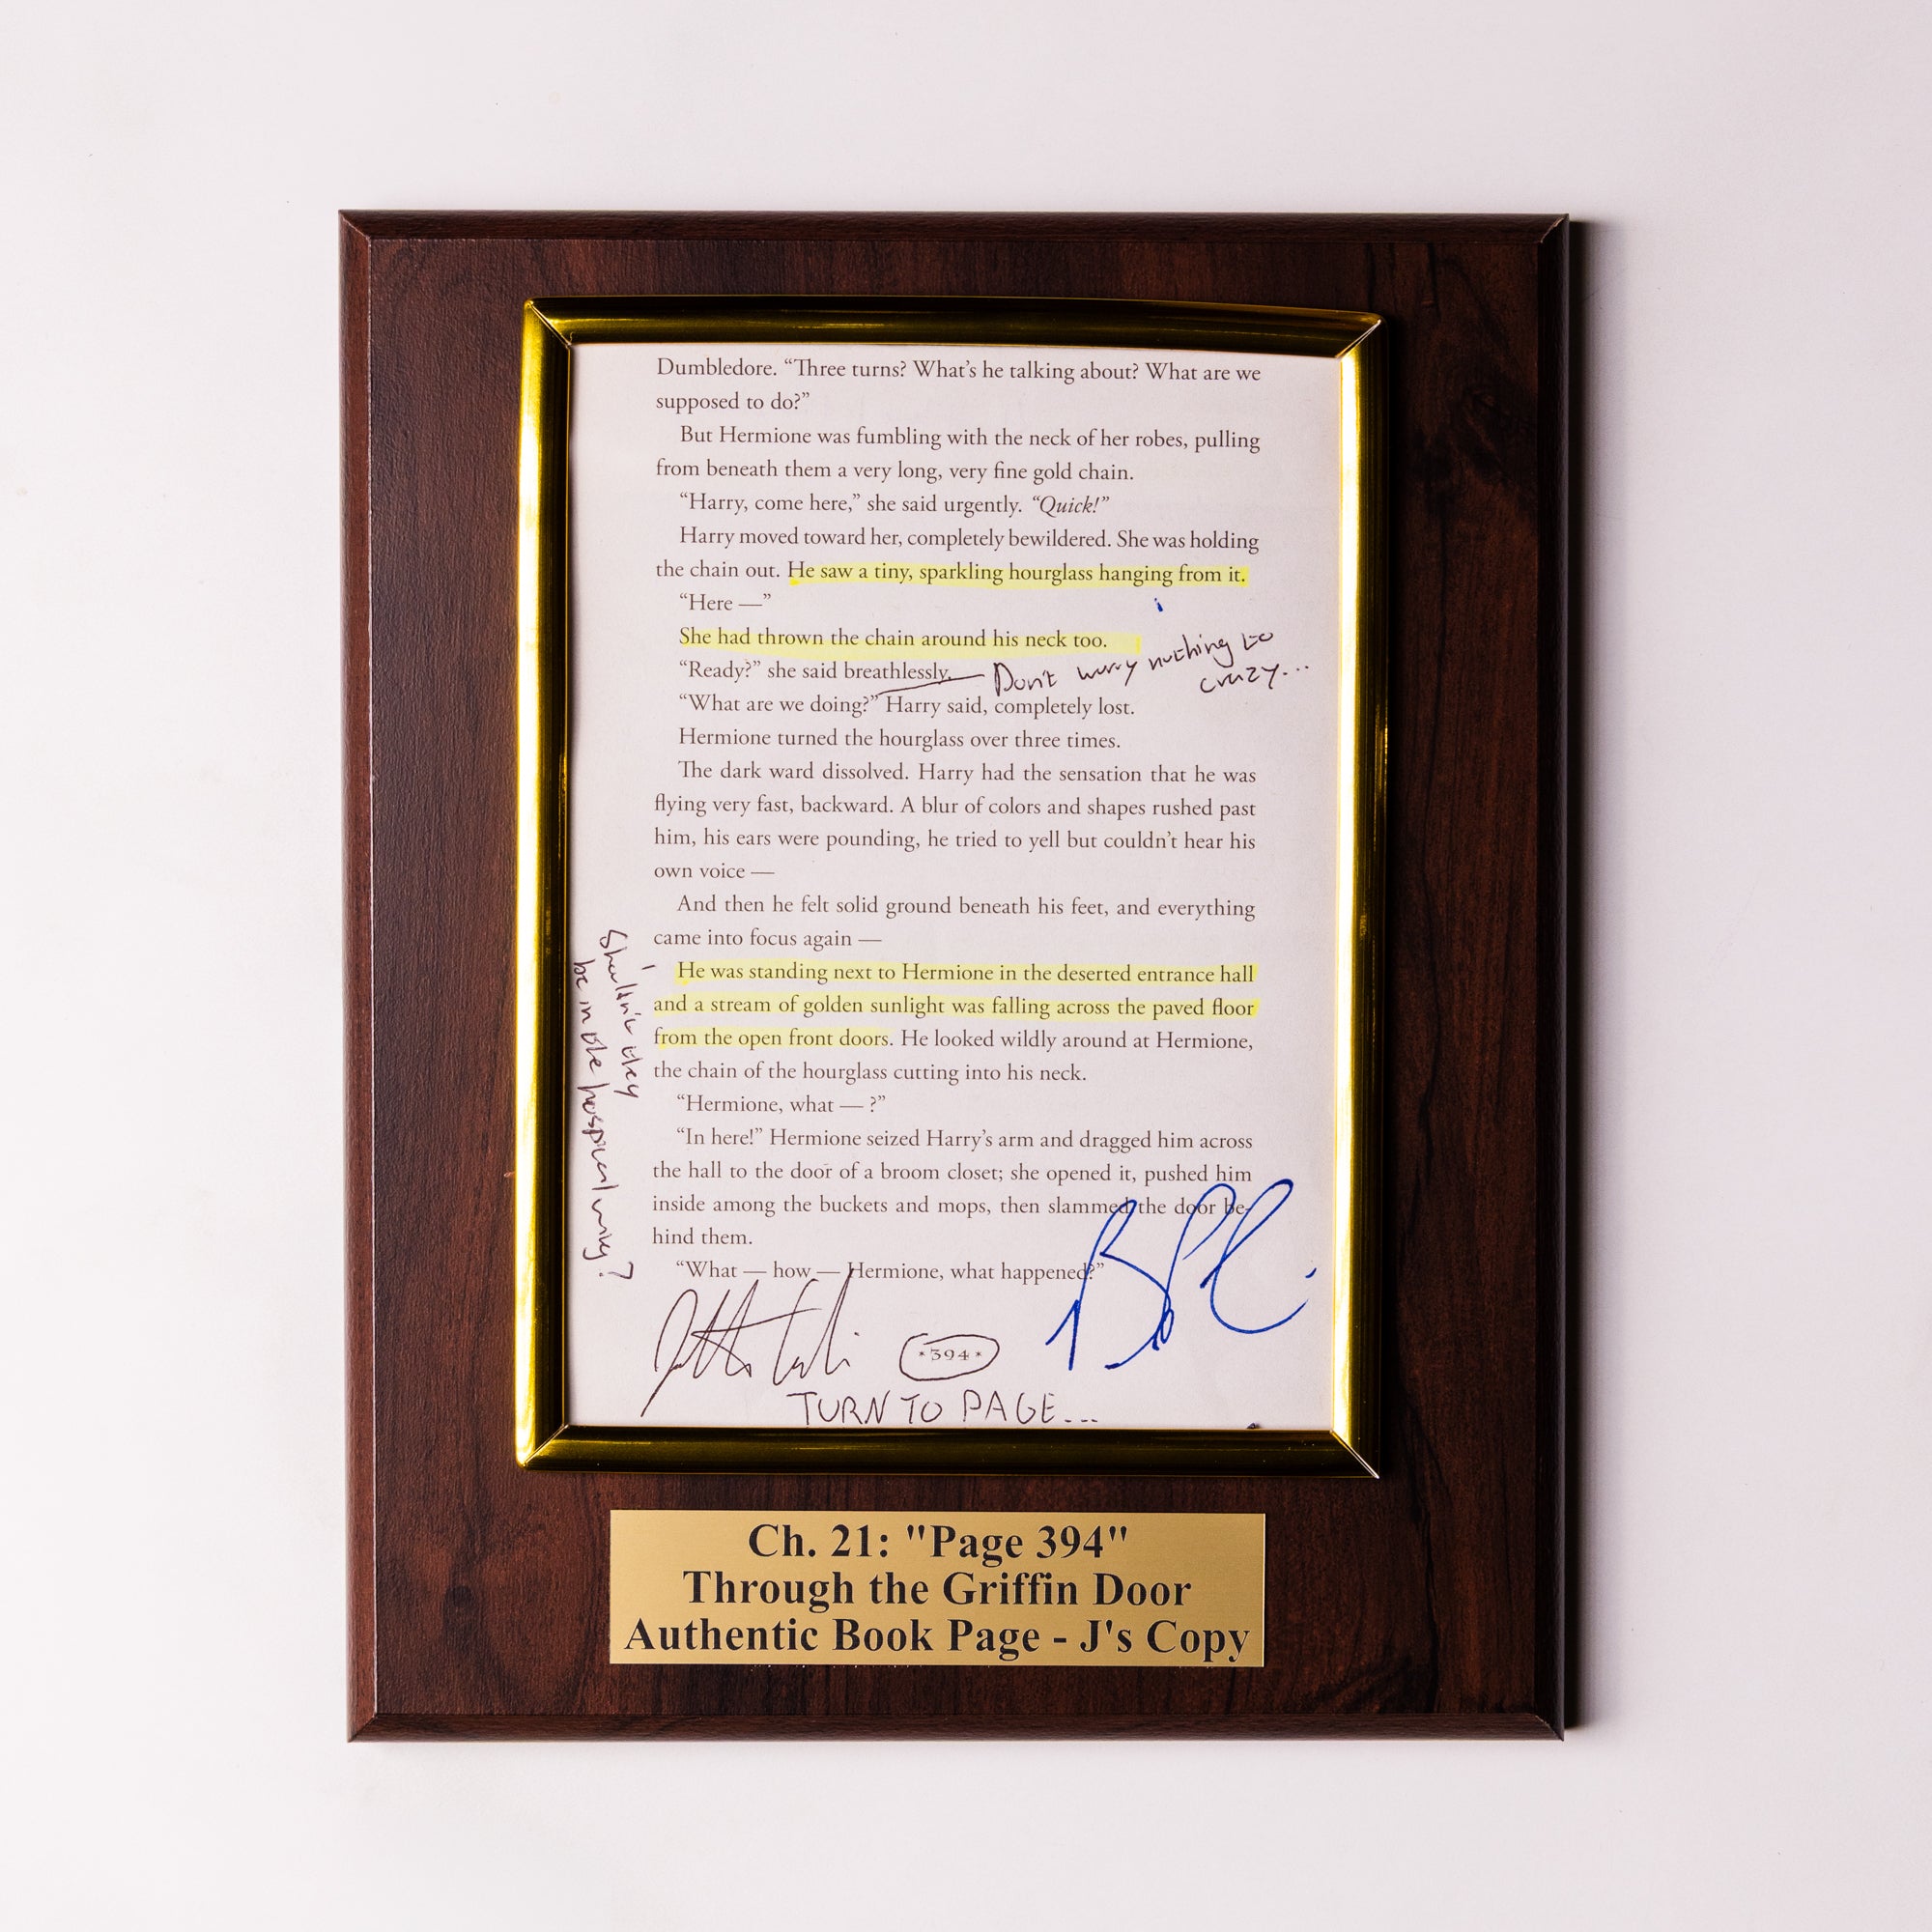 Dumbledore. “Three turns? What’s he talking about? What are we
supposed to do?”
But Hermione was fumbling with the neck of her robes, pulling
from beneath them a very long, very fine gold chain.
“Harry, come here,” she said urgently. “Quick!”
Harry moved toward her, completely bewildered. She was holding
the chain out. He saw a tiny, sparkling hourglass hanging from it.
“Here —”
She had thrown the chain around his neck too.
“Ready?” she said breathlessly.
Don't worry nothing to
crazy...
“What are we doing?” Harry said, completely lost.
Hermione turned the hourglass over three times.
The dark ward dissolved. Harry had the sensation that he was
flying very fast, backward. A blur of colors and shapes rushed past
him, his ears were pounding, he tried to yell but couldn’t hear his
own voice —
And then he felt solid ground beneath his feet, and everything
came into focus again —
He was standing next to Hermione in the deserted entrance hall
and a stream of golden sunlight was falling across the paved floor
from the open front doors. He looked wildly around at Hermione,
the chain of the hourglass cutting into his neck.
Shouldn't they
be in the hospital wing?
“Hermione, what — ?”
“In here!” Hermione seized Harry’s arm and dragged him across
the hall to the door of a broom closet; she opened it, pushed him
inside among the buckets and mops, then slammed the door be-
hind them.
“What — how — Hermione, what happened?”
*394*
TURN TO PAGE...
Ch. 21: "Page 394"
Through the Griffin Door
Authentic Book Page - J's Copy